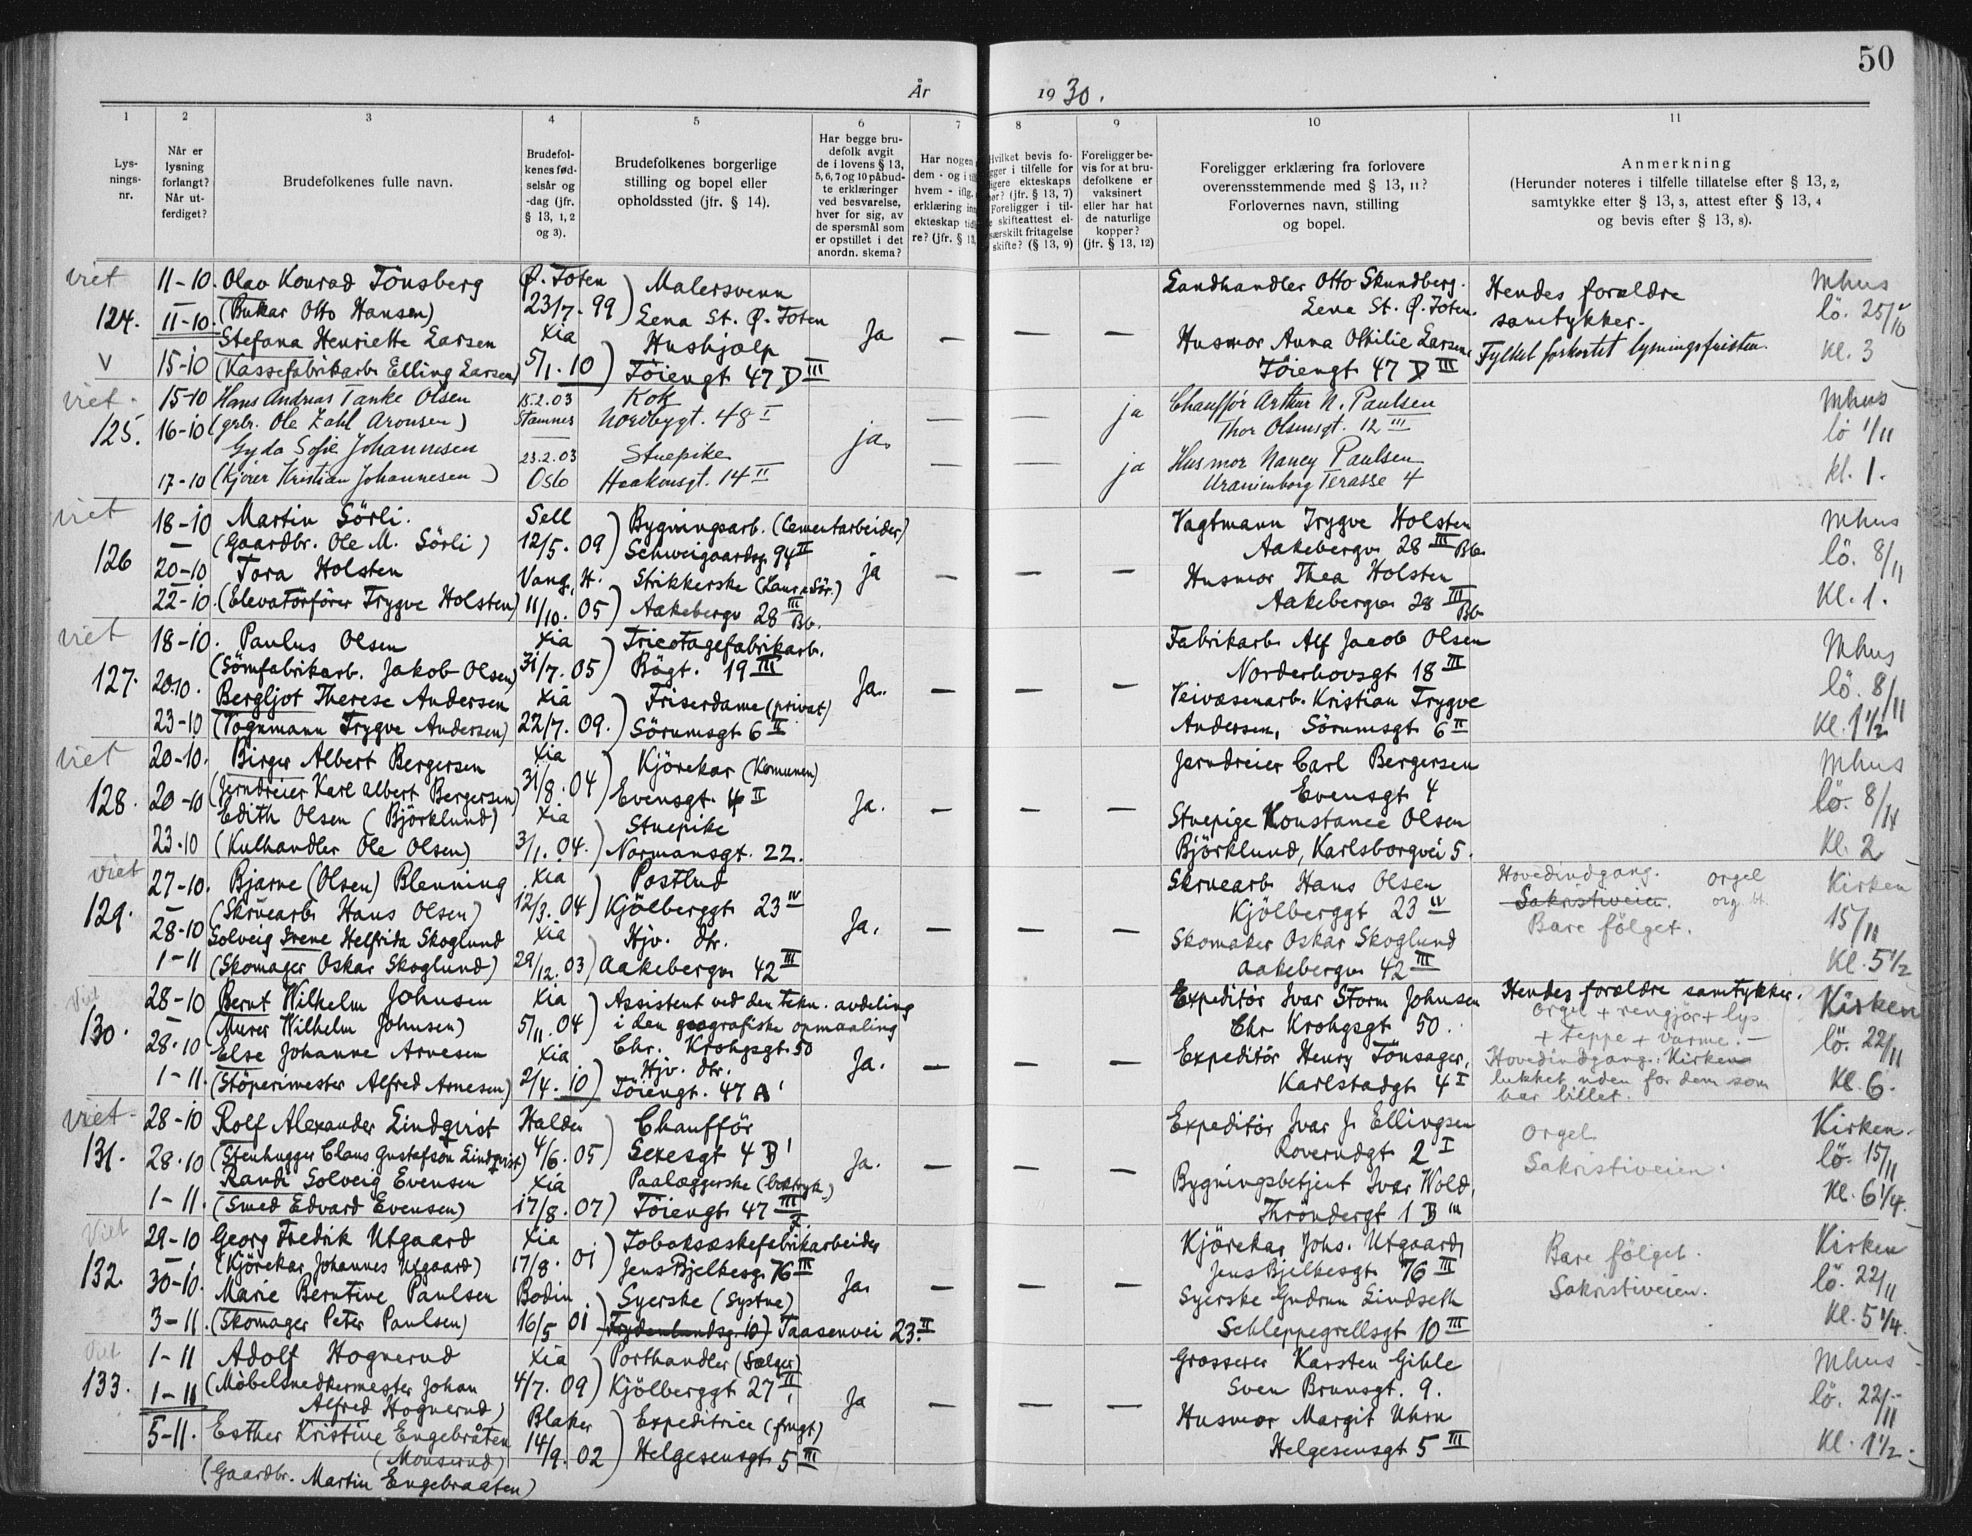 50
År 1930.
1 2 3 4 5 6 7 8 9 10 11
Lys-
nings-
nr.
Når er
lysning
forlangt?
Når ut-
ferdiget?
Brudefolkenes fulle navn.
Brudefol-
kenes fød-
selsår og
-dag (jfr.
§ 13, 1, 2
og 3).
Brudefolkenes borgerlige
stilling og bopel eller
opholdssted (jfr. § 14).
Har begge bru-
defolk avgit
de i lovens § 13,
5, 6, 7 og 10 påbud-
te erklæringer
ved besvarelse,
hver for sig, av
de spørsmål som
er opstillet i det
anordn. skema?
Har nogen
dem - og i
hvem - iflg.
erklæring
ekteskap
re? (jfr. § 13,
Hvilket bevis fo-
ligger i tilfelle for
ekteskaps
(jfr. § 13, 7)
Foreligger i til-
skifteattest el-
særskilt fritagelse
skifte? (§ 13, 9)
Foreligger be-
vis for at bru-
defolkene er
vaksinert
eller har hat
de naturlige
kopper?
(jfr. § 13, 12)
Foreligger erklæring fra forlovere
overensstemmende med § 13, 11?
Forlovernes navn, stilling
og bopel.
Anmerkning
(Herunder noteres i tilfelle tillatelse efter § 13, 2,
samtykke efter § 13, 3, attest efter § 13, 4
og bevis efter § 13, 8).
viet 11-10. Olav Konrad Tönsberg Ø. Toten Malersvenn Landhandler Otto Skundberg. Hendes forældre Mhus
124. 11-10. (Bukar Otto Hansen) 23/7. 99 Lena St. Ø. Toten Lena St. Ø. Toten. samtykker. lö. 25/10
Stefana Henriette Larsen Xia Hushjælp Ja — — — Husmor Anna Othilie Larsen Fylket forkortet lysningsfristen.
V 15-10 (Kassefabrikarb. Elling Larsen) 5/1. 10 Töiengt 47 D III Töiengt 47 D III Kl. 3
viet. 15-10 Hans Andreas Tanke Olsen 15.2.03 Kok — — ja Chauffør Arthur N. Paulsen Mhus
125. 16-10 (grbr. Ole Zahl Aronsen) Stamnes Nordbygt. 48 I Thor Olsensgt. 12 III lö 1/11
Gyda Sofie Johannesen 23.2.03 Stuepike ja. — — ja Husmor Nancy Paulsen
17-10 (Kjører Kristian Johannesen) Oslo Haakonsgt. 14 II Uranienborg Terasse 4 kl. 1.
viet 18-10 Martin Sörli. Sell Bygningsarb. (Cementarbeider) Vagtmann Trygve Holsten Mhus
126 (Gaardbr. Ole M. Sörli) 12/5. 09 Schweigaardsg. 94 II Aakebergv. 28 III Bb. lö. 8/11
20-10 Tora Holsten Vang, H. Strikkerske ja — — — Husmor Thea Holsten
22-10. (Elevatorförer Trygve Holsten) 11/10. 05 Aakebergv 28 III Bb. Aakebergv. 28 III Bb. Kl. 1.
viet 18-10. Paulus Olsen Xia Tricotagefabrikarb. Fabrikarb. Alf Jacob Olsen Mhus
(Sömfabrikarb. Jakob Olsen) 31/7. 05 Bögt. 19 III Norderhovsgt 18 III
127. 20.10. Bergljot Therese Andersen Xia Friserdame (privat) Ja. — — — Veivæsenarb. Kristian Trygve lö. 8/11
23-10 (Vognmann Trygve Andersen) 22/7. 09. Sörumsgt 6 II Andersen, Sörumsgt 6 II Kl. 1 1/2
viet 20-10. Birger Albert Bergersen Xia Kjörekar (Komunen) Jerndreier Carl Bergersen Mhus
128. 20-10 (Jerndreier Karl Albert Bergersen) 31/8. 04 Evensgt. 4 II Evensgt 4 lö. 8/11
Edith Olsen (Björklund) Xia Stuepike Ja. — — — Stuepige Konstance Olsen
23.10 (Kulhandler Ole Olsen) 3/1. 04. Normansgt. 22. Björklund, Karlsborgvei 5. Kl. 2
viet 27-10. Bjarne (Olsen) Blenning Xia Postbud Skruearb. Hans Olsen Hovedindgang. orgel Kirken
129. (Skruearb. Hans Olsen) 12/3. 04 Kjölberggt 23 IV Kjölberggt 23 IV Sakristiveien. org. bt.
28-10 Solveig Irene Helfrida Skoglund Xia Hjv. dtr. Ja. — — — Skomaker Oskar Skoglund Bare fölget. 15/11
1-11 (Skomager Oskar Skoglund) 29/12. 03 Aakebergv 42 III Aakebergv 42 III Kl. 5 1/2
viet 28-10 Bernt Wilhelm Johnsen Xia Assistent ved den tekn. avdeling Expeditör Ivar Storm Johnsen Hendes forældre samtykker. Kirken
130. (Murer Wilhelm Johnsen) 5/11. 04 i den geografiske opmaaling Chr Krohgsgt 50. orgel + rengjør + lys
28.10 Else Johanne Arnesen Xia Chr. Krohgsgt 50 + teppe + varme. — lö. 22/11
Hjv. dtr. Ja. — — — Expeditör Henry Tönsager, Hovedindgang. Kirken
1-11. (Stöperimester Alfred Arnesen) 2/4. 10 Töiengt. 47 A I Karlstadgt 4 I lukket uden for dem som Kl. 6.
har billet.
viet 28-10 Rolf Alexander Lindqvist Halden Chaufför Expeditör Ivar J. Ellingsen orgel Kirken.
131. 28.10 (Stenhugger Claus Gustafson Lindqvist) 4/6. 05 Sexesgt 4 B I Ja. — — — Roverudgt 2 I Sakristiveien. lö. 15/11
Randi Solveig Evensen Xia Paalæggerske Bygningsbetjent Ivar Wold,
1-11. (Smed Edvard Evensen) 17/8. 07 Töiengt 47 III Thröndergt 1 B III Kl. 6 1/4.
viet 29-10 Georg Fredrik Utgaard Xia Tobaksæskefabrikarbeider Kjörekar Johs. Utgaard, Bare fölget. Kirken
132. (Kjörekar Johannes Utgaard) 17/8. 01 Jens Bjelkesg. 76 III Jens Bjelkesgt 76 III
30-10. Marie Berntine Paulsen Bodin Syerske (Systue) Ja. — — — Syerske Gudrun Lindseth Sakristiveien. lö. 22/11
3-11. (Skomager Peter Paulsen) 16/5 01 Frydenlundsg. 10) Taasenvei 23. II Schleppegrellsgt 10 III Kl. 5 1/4.
viet 1-11 Adolf Hognerud Xia Porthandler (Sælger) Grosserer Karsten Gihle Mhus
133. 1-11 (Möbelsnedkermester Johan 4/7. 09 Kjölberggt 27 II Sven Brunsgt. 9. lö. 22/11
Alfred Hognerud) Ja — — —
5-11. Esther Kristine Engebråten Blaker Expeditrice (frugt) Husmor Margit Uhrn
(Monserud) 14/9. 02 Helgesensgt 5 III Helgesensgt 5 III Kl. 1 1/2.
(Gaardbr. Martin Engebraaten)